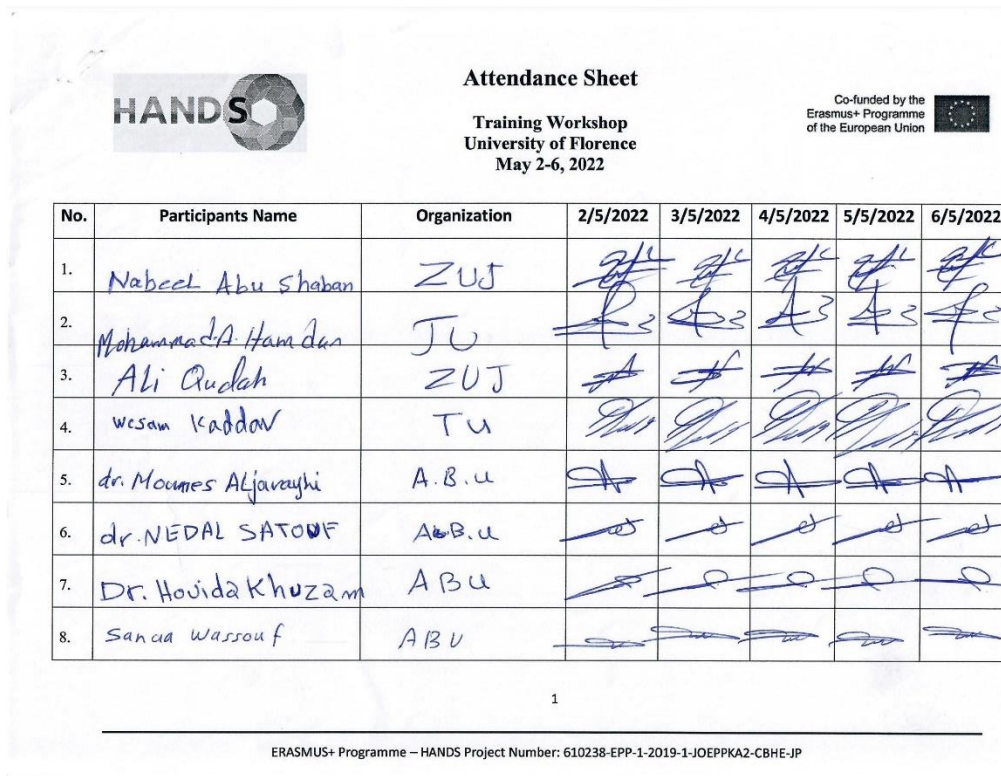 HANDS
Attendance Sheet
Training Workshop
University of Florence
May 2-6, 2022
Co-funded by the
Erasmus+ Programme
of the European Union
No. Participants Name Organization 2/5/2022 3/5/2022 4/5/2022 5/5/2022 6/5/2022
1. Nabeel Abu Shaban ZUJ
2. Mohammad A. Hamdan JU
3. Ali Qudah ZUJ
4. wesam Kaddov TU
5. dr. Moumes ALjavayhi A.B.u
6. dr. NEDAL SATOUF A.B.u
7. Dr. Hovida Khuzam ABU
8. Sanaa Wassouf ABU
1
ERASMUS+ Programme – HANDS Project Number: 610238-EPP-1-2019-1-JOEPPKA2-CBHE-JP